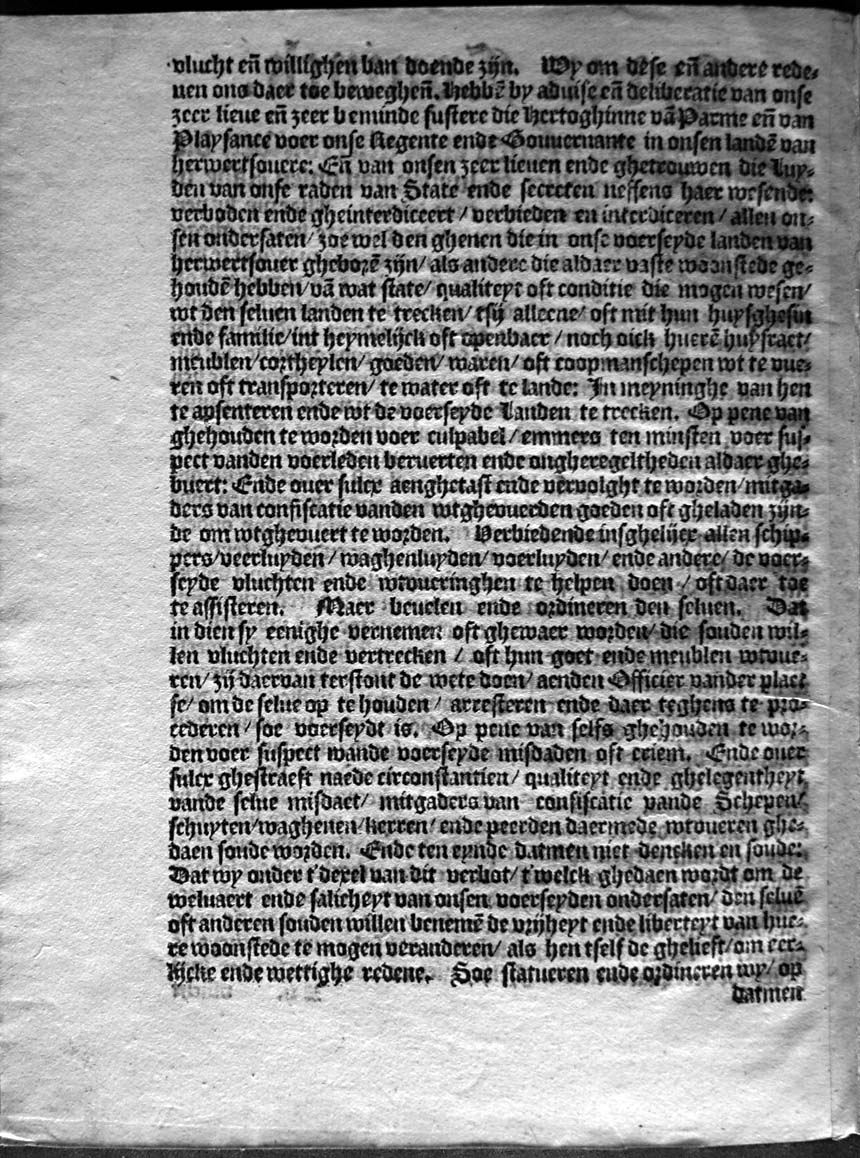 vlucht eñ willighen van doende zijn. Wy om dese eñ andere rede⸗
uen ons daer toe beweghen̄. Hebbē by aduise eñ deliberatie van onse
zeer lieue eñ zeer beminde sustere die Hertoghinne vā Parme eñ van
Playsance voer onse Regente ende Gouuernante in onsen landē van
herwertsouere: Eñ van onsen zeer lieuen ende ghetrouwen die Luy⸗
den van onse raden van State ende secreten neffens haer wesende:
verboden ende gheinterdiceert / verbieden en interdiceren / allen on⸗
sen ondersaten / zoe wel den ghenen die in onse voerseyde landen van
herwertsouer gheborē zijn / als andere die aldaer vaste woonstede ge⸗
houdē hebben / vā wat state / qualiteyt oft conditie die mogen wesen /
wt den seluen landen te trecken / tsij alleene / oft mit hun huysghesin
ende familie / int heymelijck oft openbaer / noch oick huerē huysraet /
meublen / cortheylen / goeden / waren / oft coopmanschepen wt te vue⸗
ren oft transporteren / te water oft te lande: In meyninghe van hen
te apsenteren ende wt de voerseyde Landen te trecken. Op pene van
ghehouden te worden voer culpabel / emmers ten minsten voer sus⸗
pect vanden voerleden beruerten ende ongheregeltheden aldaer ghe⸗
buert: Ende ouer sulcx aenghetast ende vervolght te worden / mitga⸗
ders van confiscatie vanden wtghevuerden goeden oft gheladen zijn⸗
de om wtghevuert te worden. Verbiedende insghelijcx allen schip⸗
pers / veerluyden / waghenluyden / voerluyden / ende andere / de voer⸗
seyde vluchten ende wtvueringhen te helpen doen / oft daer toe
te assisteren. Maer beuelen ende ordineren den seluen. Dat
in dien sy eenighe vernemen oft ghewaer worden / die souden wil⸗
len vluchten ende vertrecken / oft hun goet ende meublen wtvue⸗
ren / zij daervan terstont de wete doen / aenden Officier vander plaet
se / om de selue op te houden / arresteren ende daer teghens te pro⸗
cederen / soe voerseydt is. Op pene van selfs ghehouden te wor⸗
den voer suspect vande voerseyde misdaden oft criem. Ende ouer
sulcx ghestraeft naede circonstantien / qualiteyt ende ghelegentheyt
vande selue misdaet / mitgaders van confiscatie vande Schepen /
schuyten / waghenen / kerren / ende peerden daermede wtvueren ghe⸗
daen soude worden. Ende ten eynde datmen niet dencken en soude:
Dat wy onder t'dexel van dit verbot / t'welck ghedaen wordt om de
weluaert ende salicheyt van onsen voerseyden ondersaten / den seluē
oft anderen souden willen benemē de vrijheyt ende liberteyt van hue⸗
re woonstede te mogen veranderen / als hen tself de ghelieft / om eer⸗
lijcke ende wettighe redene. Soe statueren ende ordineren wy / op
datmen